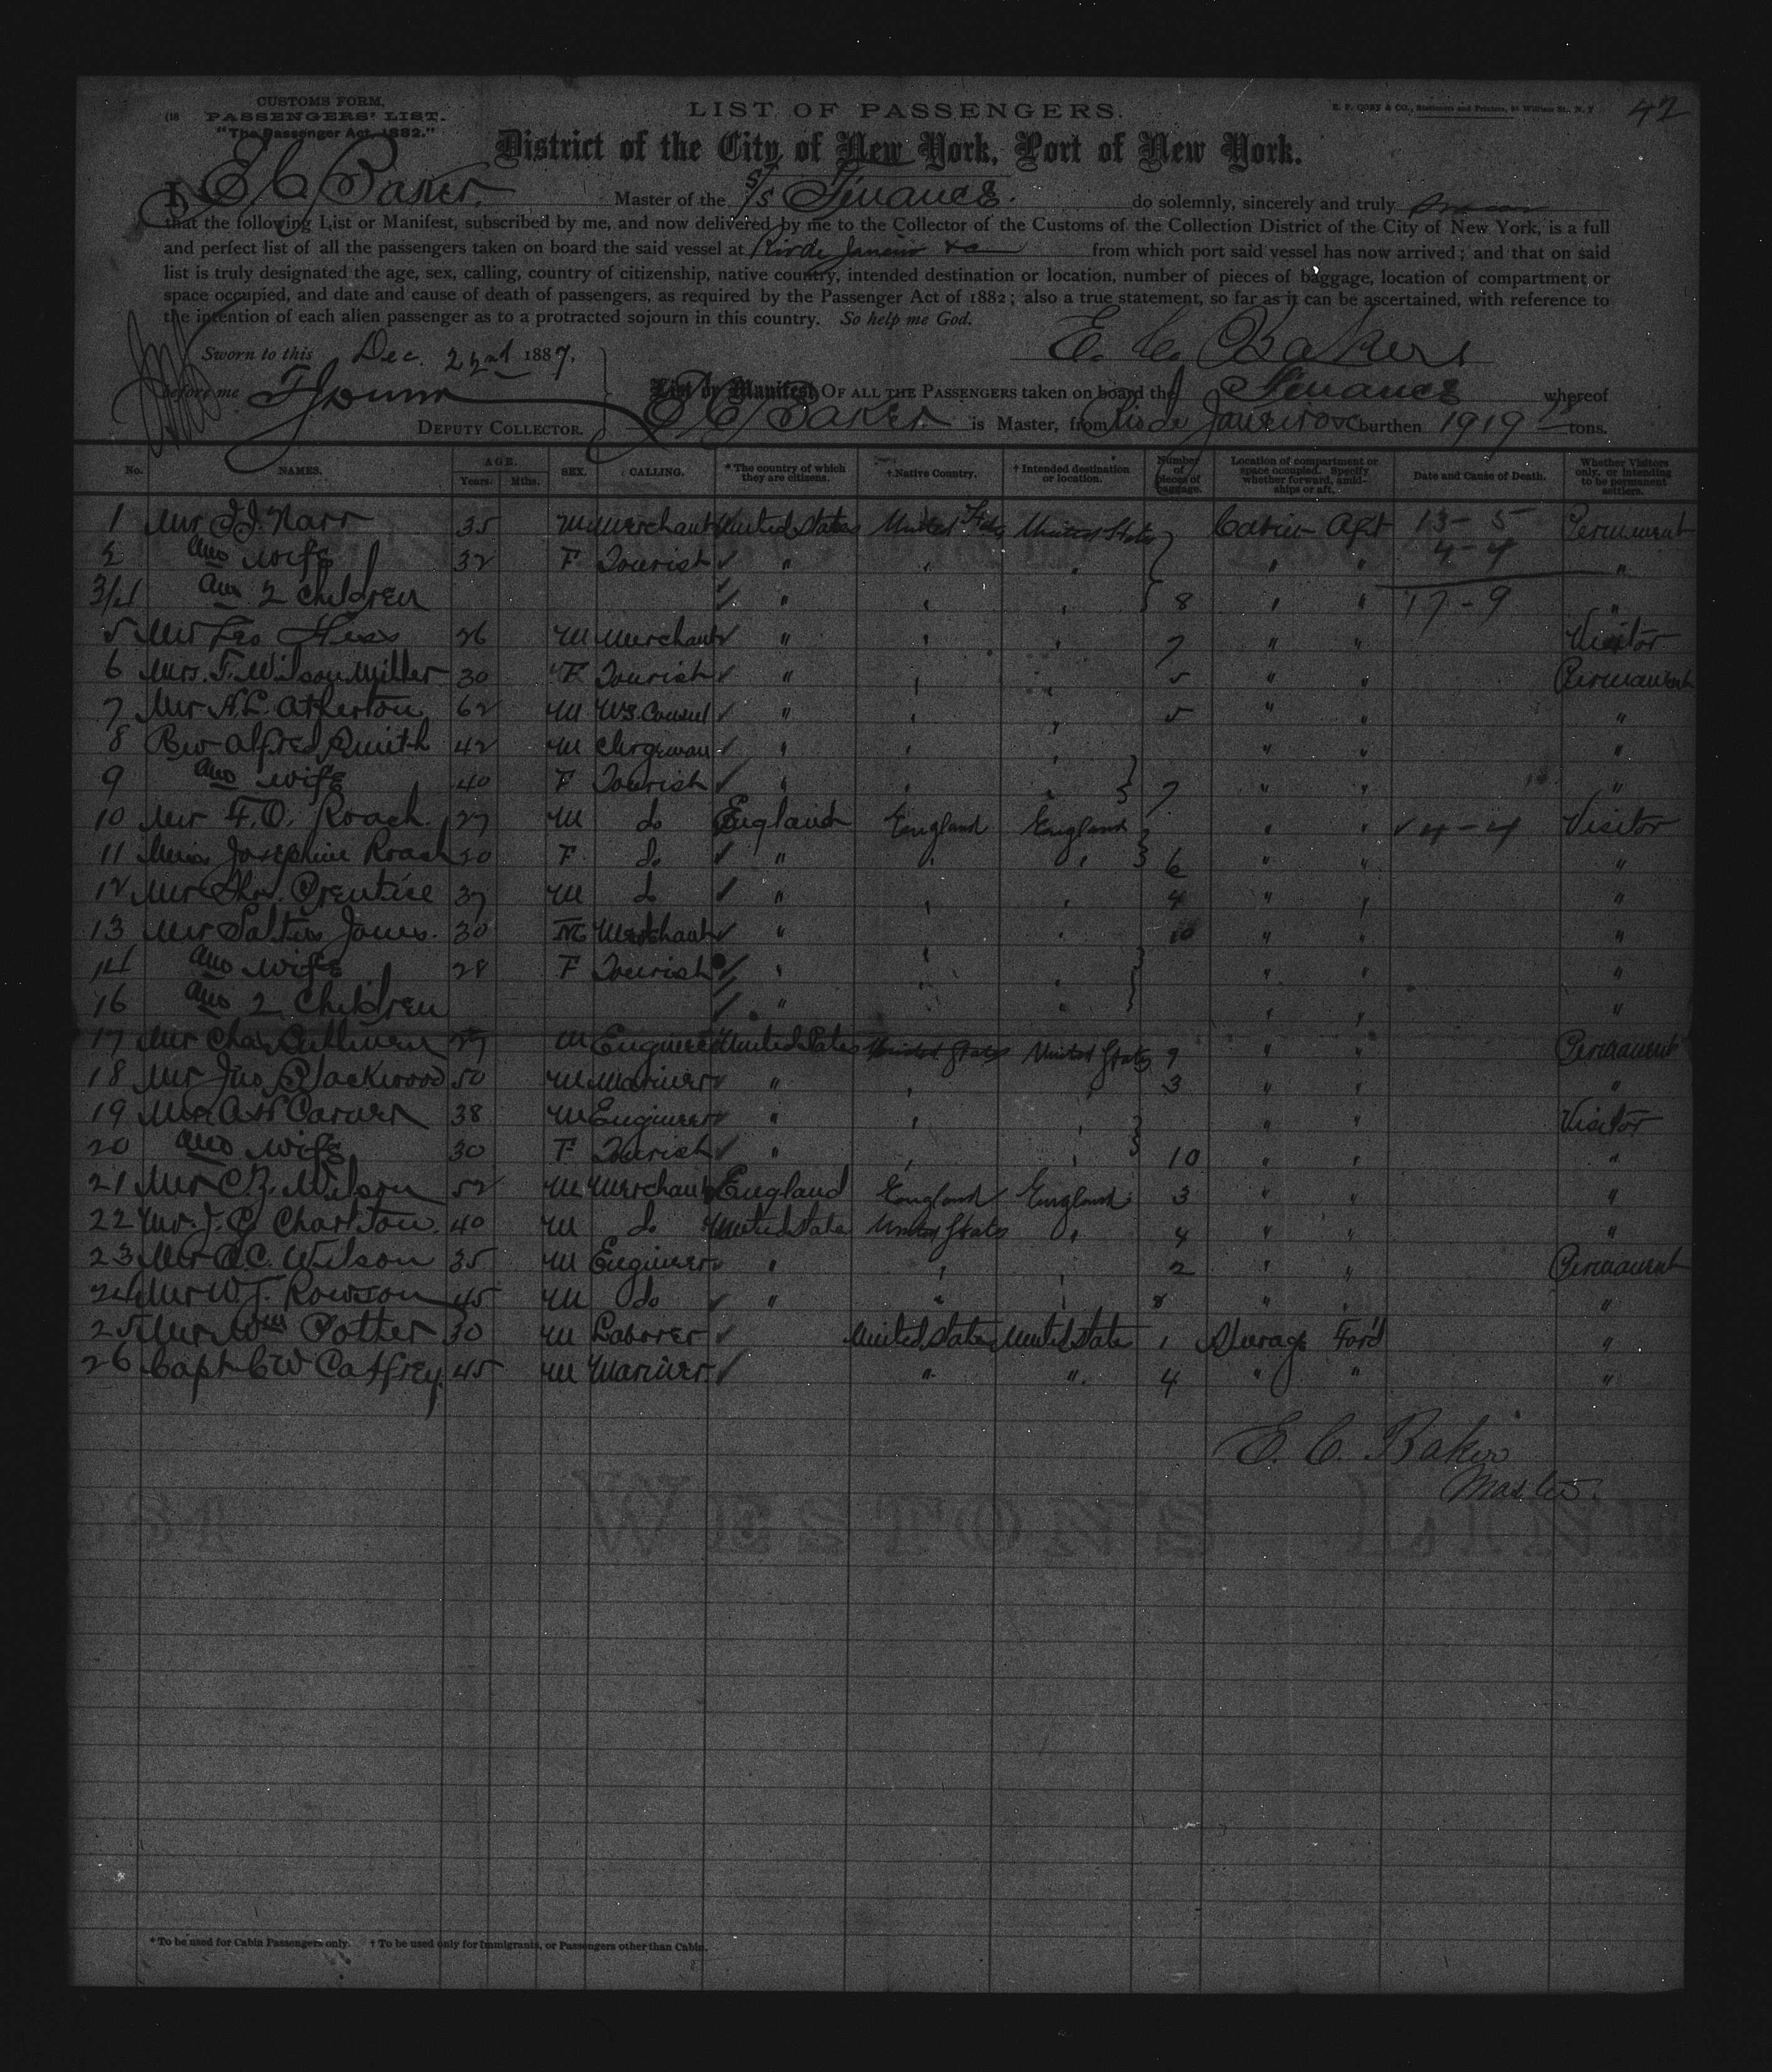 CUSTOMS FORM,
PASSENGERS' LIST.
"The Passenger Act, 1882."
LIST OF PASSENGERS.
E. F. CORY & CO., Stationers and Printers, 54 William St., N. Y
42
District of the City of New York, Port of New York.
I, E C Baker. Master of the S/S Finance. do solemnly, sincerely and truly swear
that the following List or Manifest, subscribed by me, and now delivered by me to the Collector of the Customs of the Collection District of the City of New York, is a full
and perfect list of all the passengers taken on board the said vessel at Rio de Janeiro &c from which port said vessel has now arrived; and that on said
list is truly designated the age, sex, calling, country of citizenship, native country, intended destination or location, number of pieces of baggage, location of compartment or
space occupied, and date and cause of death of passengers, as required by the Passenger Act of 1882; also a true statement, so far as it can be ascertained, with reference to
the intention of each alien passenger as to a protracted sojourn in this country. So help me God.
Sworn to this Dec. 22nd 1887. E. C. Baker
before me
DEPUTY COLLECTOR.
List or Manifest OF ALL THE PASSENGERS taken on board the Finance whereof
E C Baker. is Master, from Rio de Janeiro &c burthen 1919 tons.
No. NAMES. AGE. Years. Mths. SEX. CALLING. * The country of which they are citizens. † Native Country. † Intended destination or location. Number of pieces of baggage. Location of compartment or space occupied. Specify whether forward, amidships or aft. Date and Cause of Death. Whether Visitors only, or intending to be permanent settlers.
1 Mr J.J. Narr 35 M Merchant United States United States United States Cabin Aft 13-5 Permanent
2 and wife 32 F Tourist " " " " " 4-4 "
3/4 and 2 children " " " 8 " " 17-9 "
5 Mr Leo Hess 26 M Merchant " " " 7 " " Visitor
6 Mrs. F. Wilson Miller 30 F Tourist " " " 5 " " Permanent
7 Mr A.L. Atherton 62 M U.S. Consul " " " 5 " " "
8 Rev Alfred Smith 42 M Clergeman " " " " " "
9 and wife 40 F Tourist " " " 7 " " "
10 Mr F.O. Roach. 27 M do England England England " " 4-4 Visitor
11 Miss Josephine Roach 20 F do " " " 6 " " "
12 Mr Thos. Prentice 37 M do " " " 4 " " "
13 Mr Saltus Jones. 30 M Merchant " " " 10 " " "
14 and wife 28 F Tourist " " " " " "
16 and 2 Children " " " " " "
17 Mr Chas 29 M Engineer United States United States United States 9 " " Permanent
18 Mr Jno Blackwood 50 M Mariner " " " 3 " " "
19 Mr A W Carver 38 M Engineer " " " " " Visitor
20 and wife 30 F Tourist " " " 10 " " "
21 Mr C.Z. Wilson 52 M Merchant England England England 3 " " "
22 Mr. J. G. Charlton. 40 M do United States United States " 4 " " "
23 Mr A.C. Wilson 35 M Engineer " " " 2 " " Permanent
24 Mr W.T. Rowson 45 M do " " " 8 " " "
25 Mr Wm Potter 30 M Laborer United States United States 1 Steerage For'd "
26 Capt C W Caffrey. 45 M Mariner " " 4 " " "
E. C. Baker
Master.
* To be used for Cabin Passengers only. † To be used only for Immigrants, or Passengers other than Cabin.